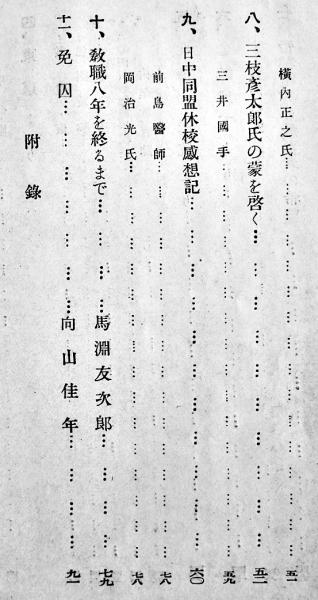 橫內正之氏…………………………五一
八、三枝彥太郎氏の蒙を啓く…………………………五二
三井國手…………………………五九
九、日中同盟休校感想記…………………………六〇
前島醫師…………………………七八
岡治光氏…………………………七八
十、敎職八年を終るまで…………馬淵友次郎…………七九
十一、免囚…………………………向山佳年…………九一
附錄